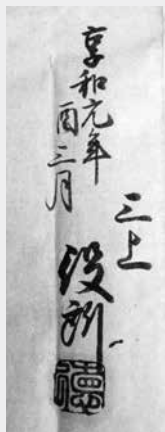 享和元年
酉三月
三上
役所
德